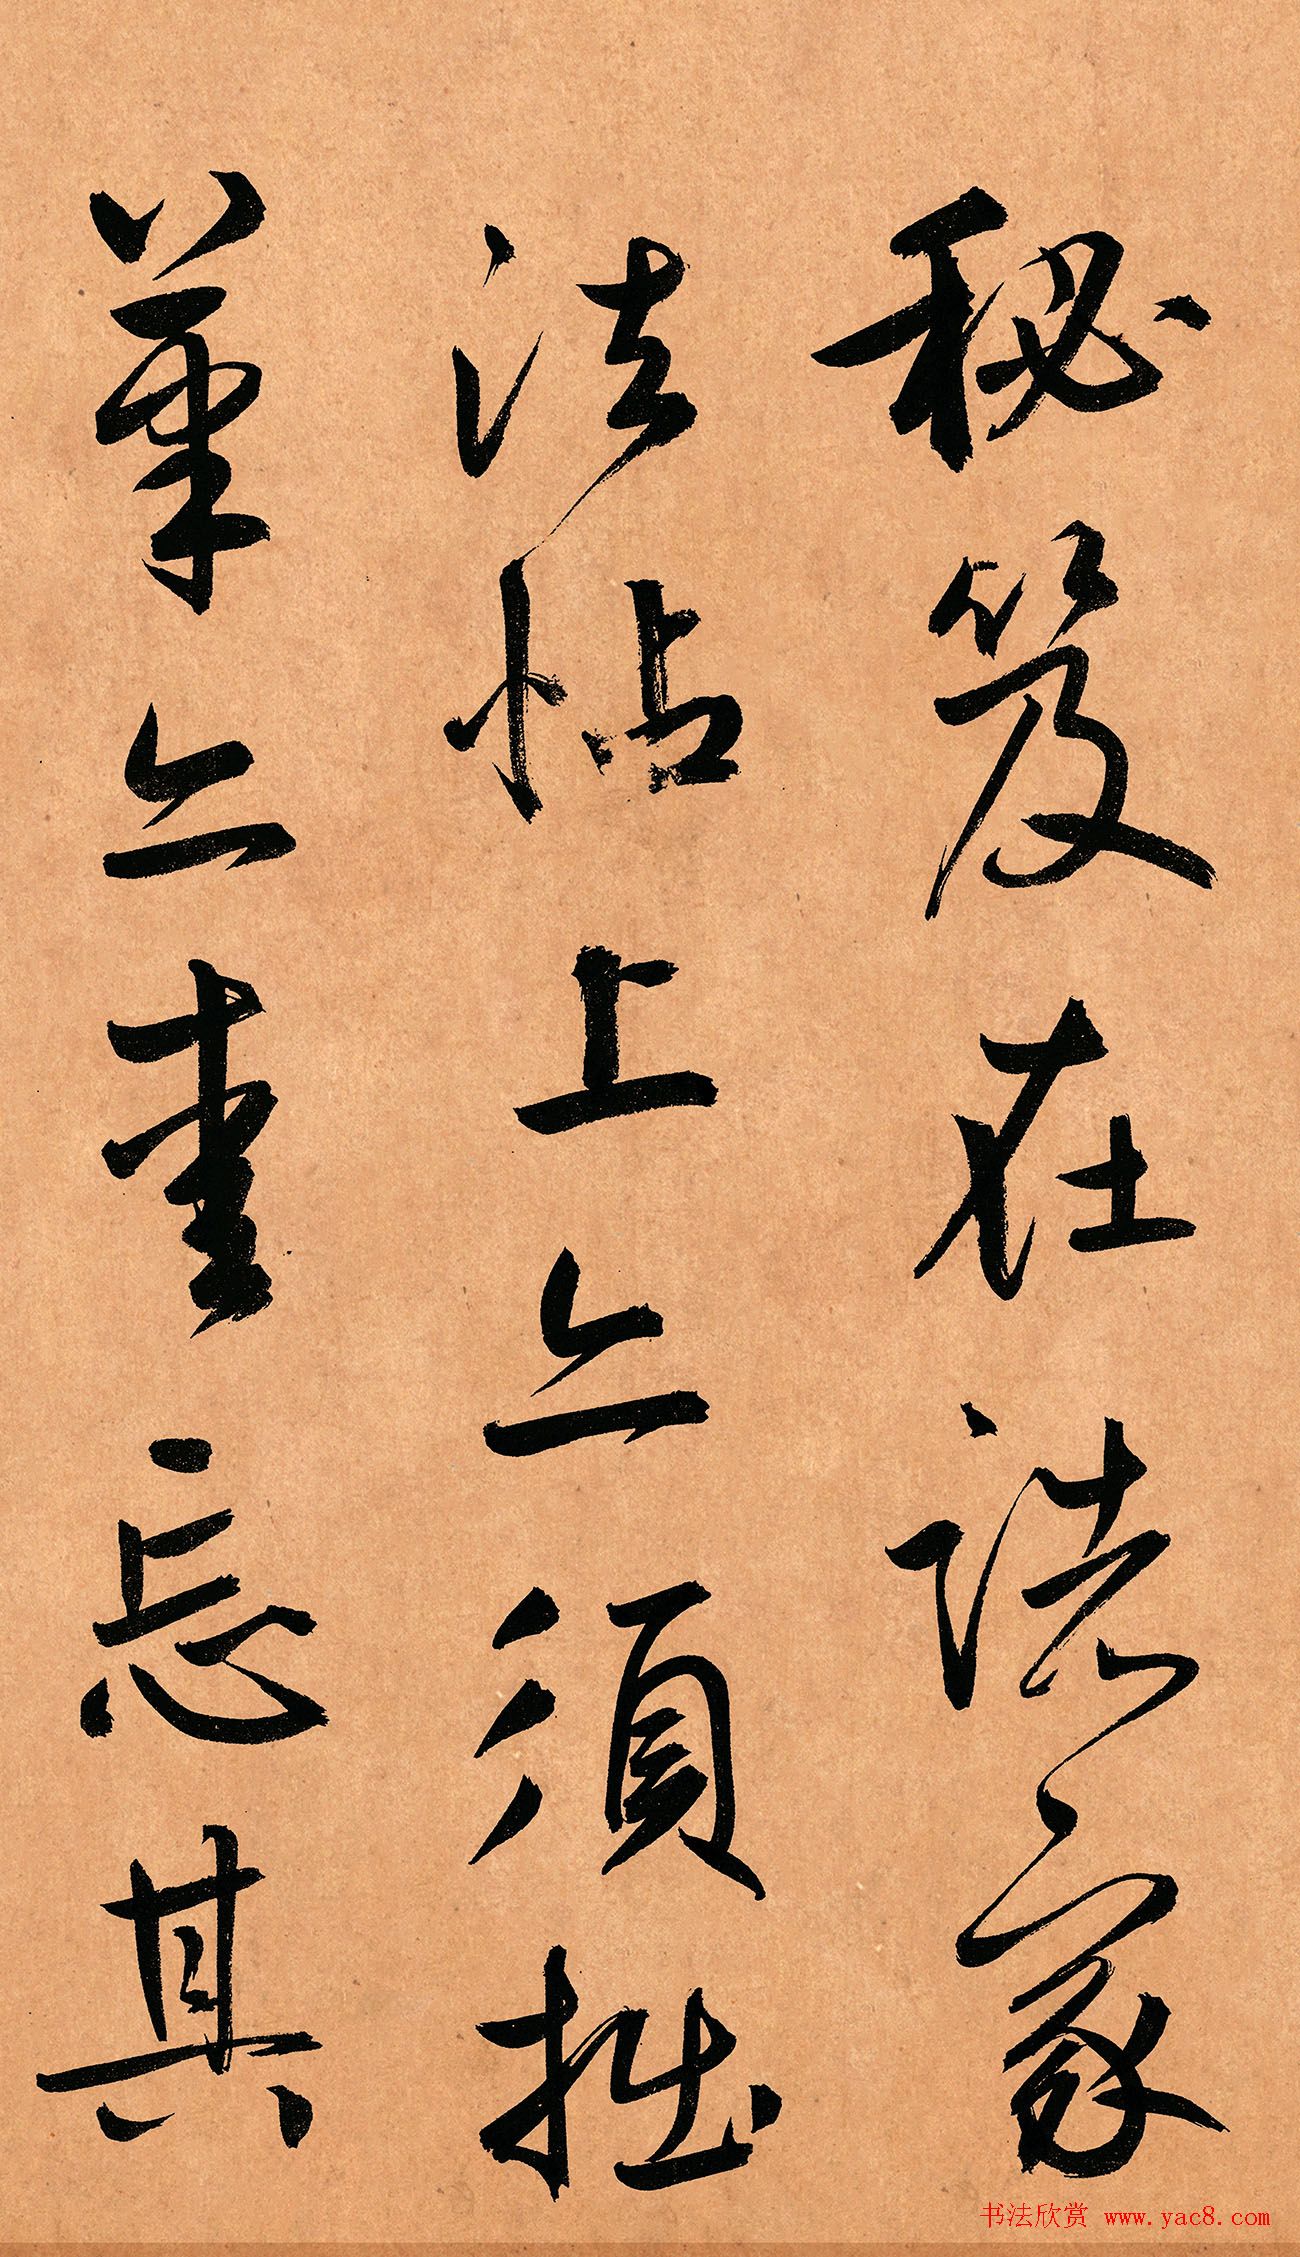 秘笈在諸家
法帖上須拙
筆忘其
书法欣赏 www.yac8.com